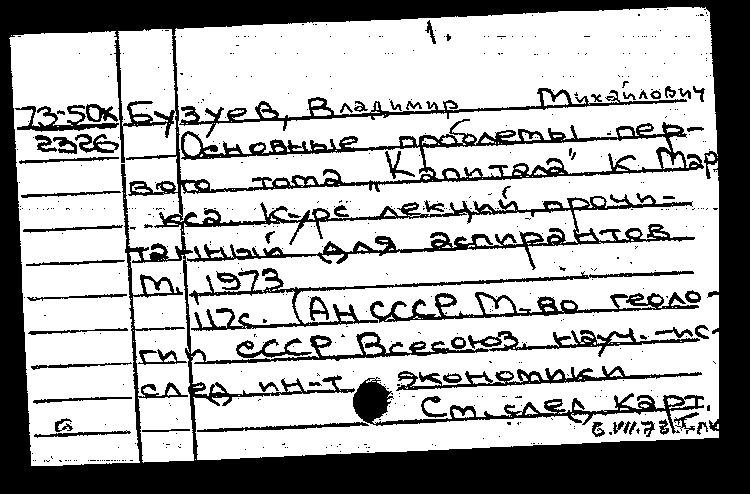 1.
73-50к Бузуев, Владимир Михайлович
2326 Основные проблемы пер-
вого тома „Капитала" К. Мар
кса. Курс лекций, прочи-
танный для аспирантов
М., 1973
117с. (АН СССР. М-во геоло-
гии СССР. Всесоюз. науч.-ис-
след. ин-т экономики
См. след. карт.